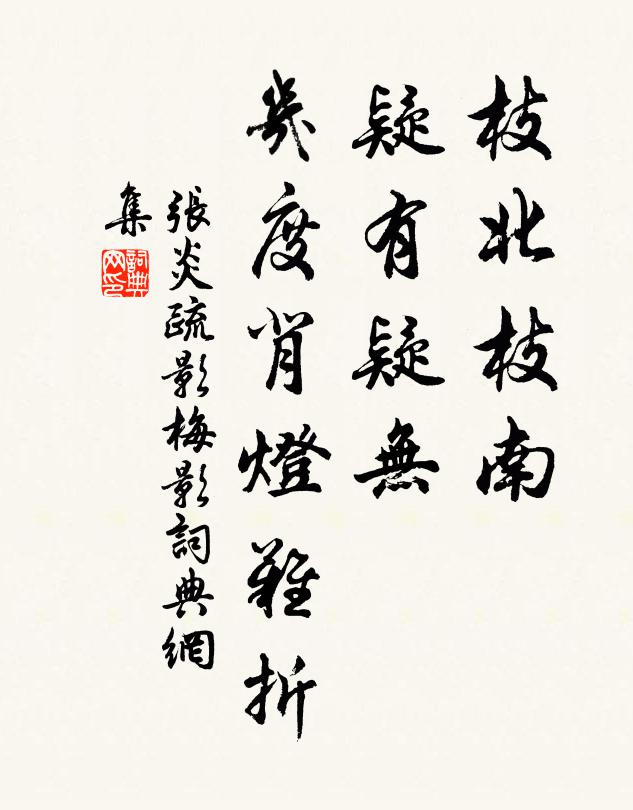 枝北枝南
疑有疑無
幾度背燈難折
張炎疏影梅影詞典網
集
詞典網印